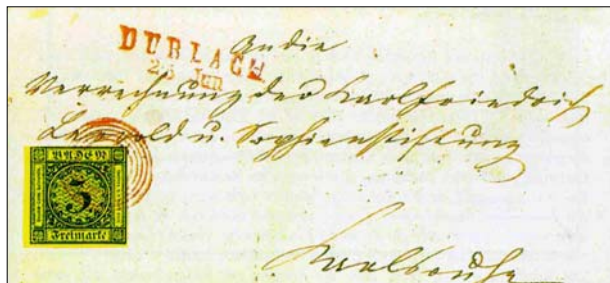 DURLACH
23 Jun
An die
Verrechnung der Karl Friedrich
Leopold u. Sophienstiftung
BADEN
3
Freimarke
Karlsruhe